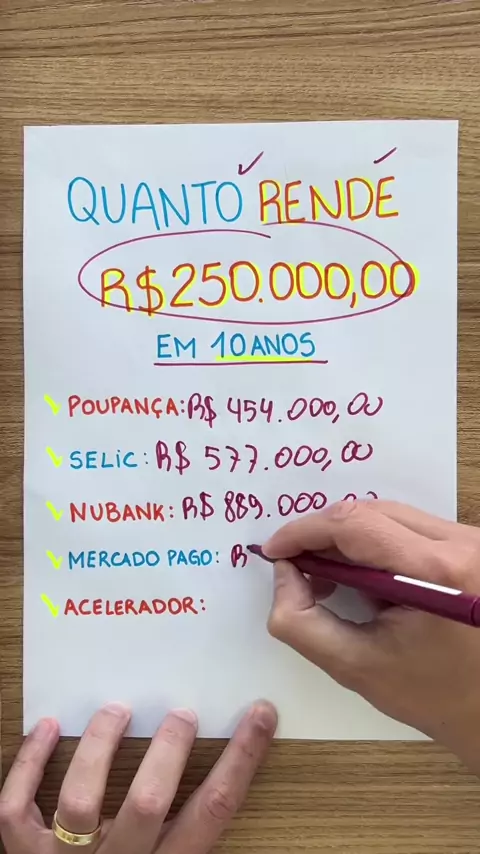 QUANTO RENDE
R$250.000,00
EM 10 ANOS
POUPANÇA: R$ 454.000,00
SELIC: R$ 577.000,00
NUBANK: R$ 889.000,00
MERCADO PAGO: R
ACELERADOR: